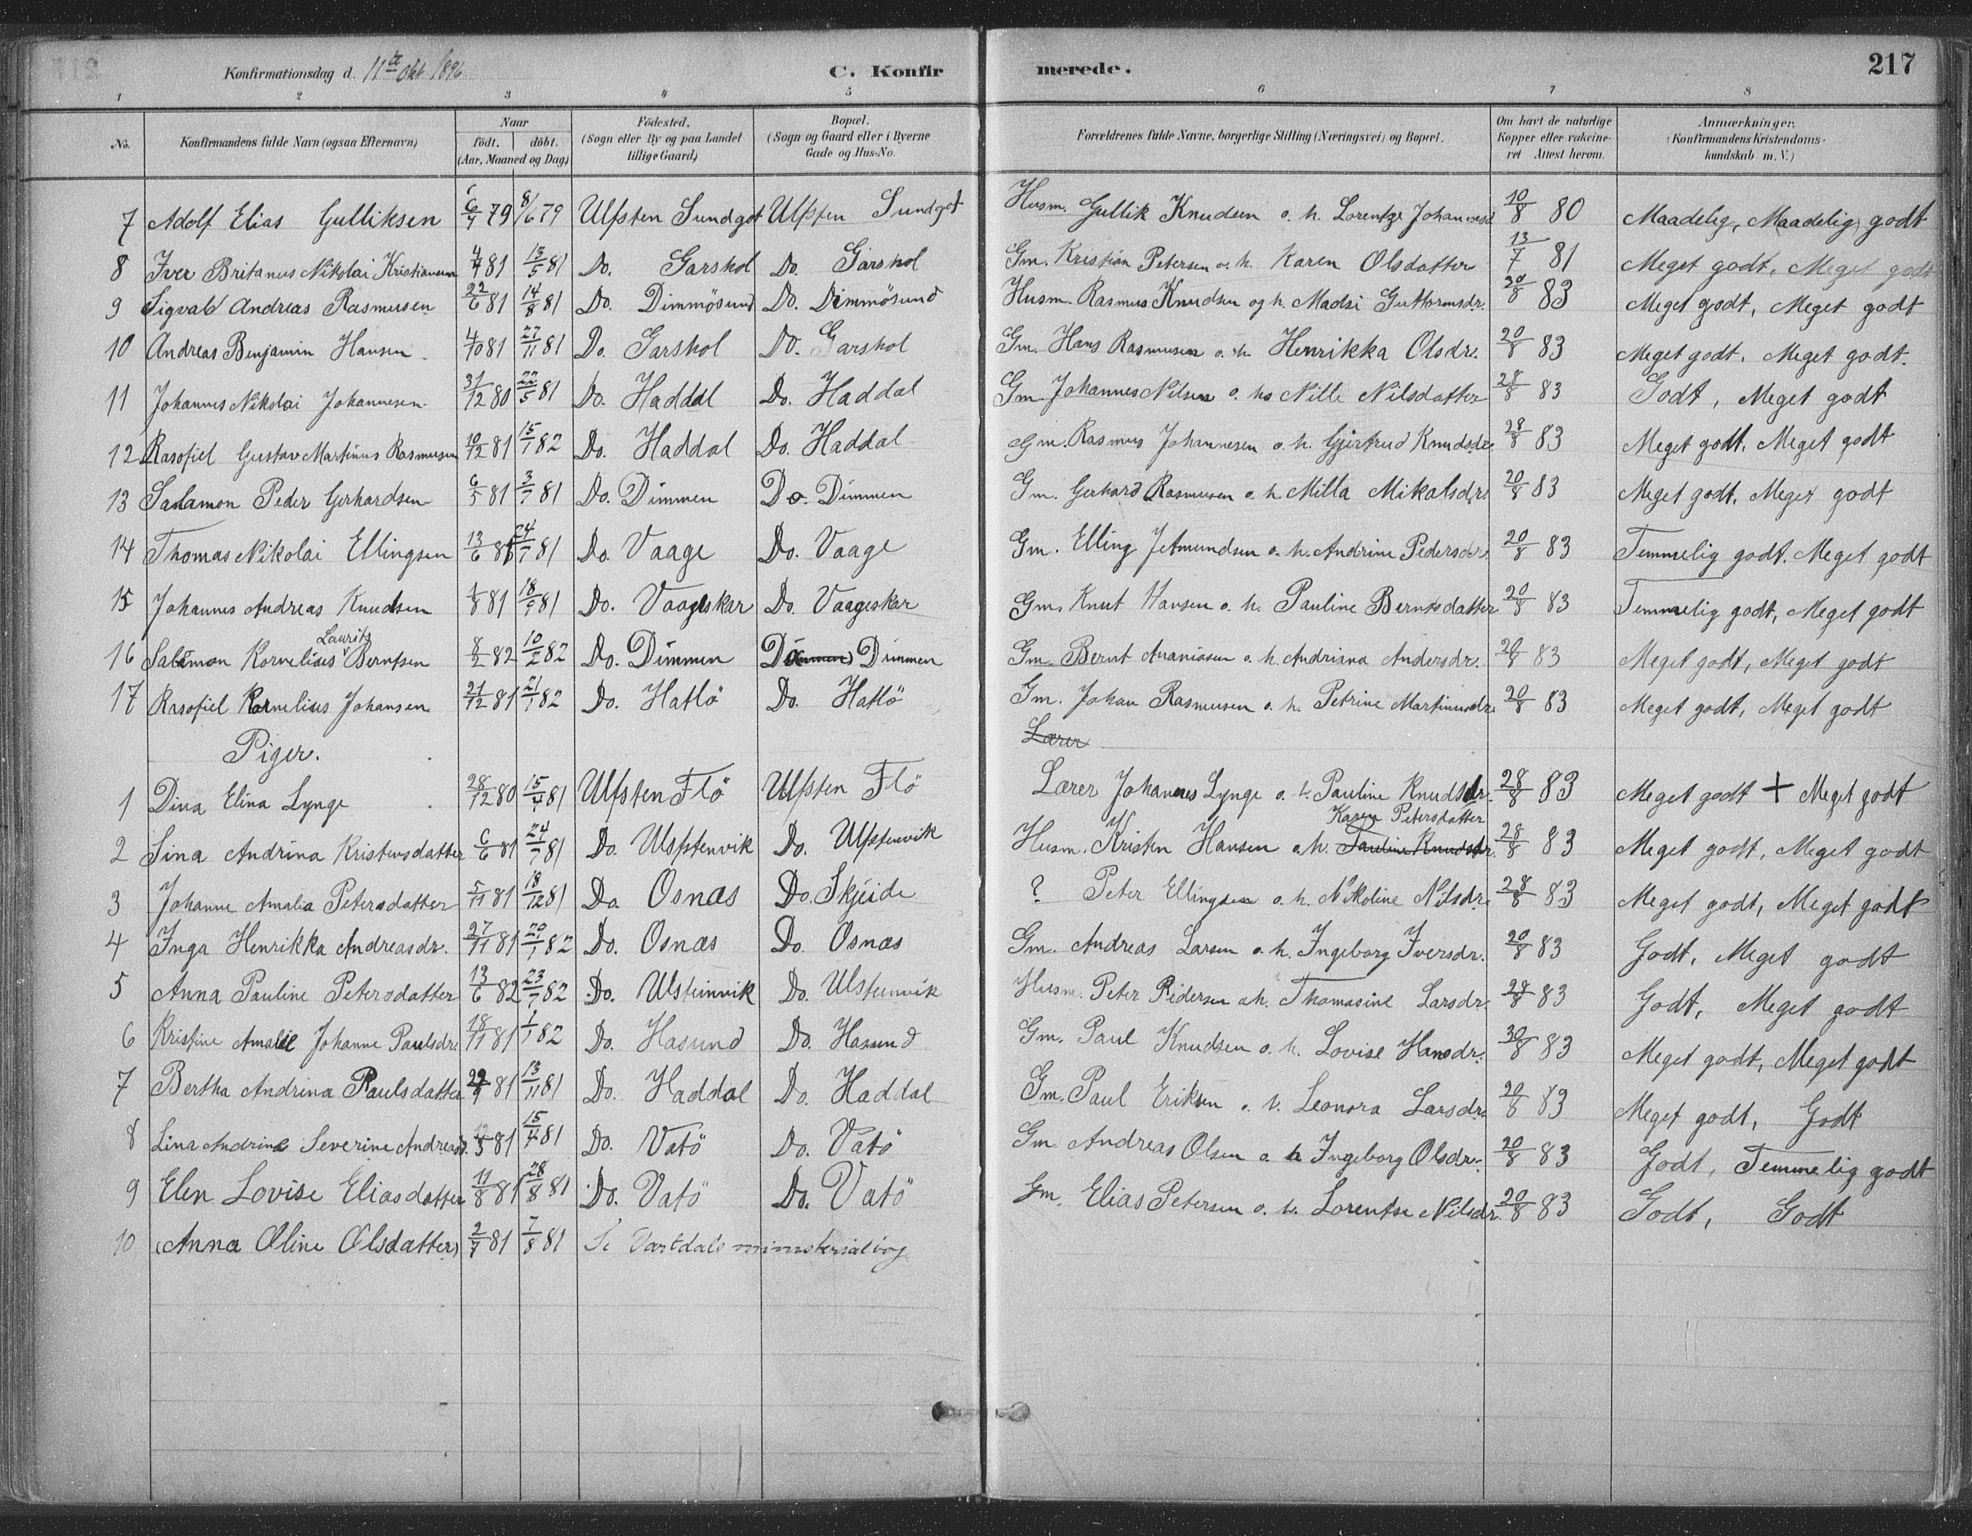 Konfirmationsdag d. 11te Okt 1896 C. Konfirmerede. 217
1 2 3 4 5 6 7 8
No. Konfirmandens fulde Navn (ogsaa Efternavn) Naar født. døbt. (Aar, Maaned og Dag) Fødested. (Sogn eller By og paa Landet tillige Gaard) Bopæl. (Sogn og Gaard eller i Byerne Gade og Hus-No. Forældrenes fulde Navne, borgerlige Stilling (Næringsvei) og Bopæl. Om havt de naturlige Kopper eller vakcineret Attest herom. Anmærkninger. (Konfirmandens Kristendomskundskab m. V.)
7 Adolf Elias Gulliksen 6/4 79 8/6 79 Ulfsten Sundgot Ulfsten Sundgot Husm. Gullik Knudsen o. h. Lorentze Johannesd 10/8 80 Maadelig, Maadelig godt
8 Iver Britanus Nikolai Kristiansen 4/4 81 13/5 81 Do. Garshol Do. Garshol Gm. Kristian Petersen o. h. Karen Olsdatter 13/7 81 Meget godt, Meget godt
9 Sigvald Andreas Rasmusen 22/6 81 14/8 81 Do. Dimmøsund Do. Dimmøsund Husm. Rasmus Knudsen og h. Madsi Guttormsdr. 20/8 83 Meget godt, Meget godt
10 Andreas Benjamin Hansen 4/10 81 27/11 81 Do. Garshol Do. Garshol Gm. Hans Rasmusen o. h. Henrikka Olsdr. 20/8 83 Meget godt, Meget godt.
11 Johannes Nikolai Johannesen 31/12 80 22/5 81 Do. Haddal Do. Haddal Gm. Johannes Nilsen o. hs Nille Nilsdatter 28/8 83 Godt, Meget godt
12 Rasofiel Gustav Martinus Rasmusen 10/12 81 15/1 82 Do. Haddal Do. Haddal Gm. Rasmus Johannesen o. h. Gjertrud Knudsdr. 28/8 83 Meget godt. Meget godt
13 Salamon Peder Gerhardsen 6/5 81 3/7 81 Do. Dimmen Do. Dimmen Gm. Gerhard Rasmusen o. h. Milla Mikalsdr. 20/8 83 Meget godt, Meget godt
14 Thomas Nikolai Ellingsen 13/6 81 24/7 81 Do Vaage Do. Vaage Gm. Elling Jetmundsen o. h. Andrine Pedersdr. 20/8 83 Temmelig godt. Meget godt
15 Johannes Andreas Knudsen 1/8 81 18/9 81 Do. Vaageskar Do. Vaageskar Gm. Knut Hansen o. h. Pauline Berntsdatter 20/8 83 Temmelig godt, Meget godt
Lauritz
16 Salamon Kornelius Berntsen 8/2 82 10/2 82 Do. Dimmen Do. Dimmen Gm. Bernt Ananiasen o. h. Andriana Andersdr. 26/8 83 Meget godt, Meget godt
17 Rasofiel Kornelius Johansen 21/12 81 21/1 82 Do. Hatlø Do. Hatlø Gm. Johan Rasmusen o. h. Petrine Martinusdr. 20/8 83 Meget godt, Meget godt
Piger. Lærer
1 Dina Elina Lynge 28/12 80 15/4 81 Ulfsten Flø Ulfsten Flø Lærer Johannes Lynge o. h. Pauline Knudsdr. 28/8 83 Meget godt + Meget godt
Karen Petersdatter
2 Sina Andrina Kristensdatter 6/6 81 24/7 81 Do. Ulfstenvik Do. Ulfstenvik Husm. Kristen Hansen o. h. Pauline Knudsdr. 28/8 83 Meget godt, Meget godt
3 Johanne Amalia Petersdatter 5/11 81 18/12 81 Do Osnæs Do. Skjeide ? Peter Ellingsen o. h. Nikoline Nilsdr. 28/8 83 Meget godt, Meget godt
4 Inga Henrikka Andreasdr. 27/11 81 20/1 82 Do. Osnæs Do. Osnæs Gm. Andreas Larsen o. h. Ingeborg Iversdr. 20/8 83 Godt, Meget godt
5 Anna Pauline Petersdatter 13/6 82 23/7 82 Do. Ulsteinvik Do. Ulsteinvik Husm. Peter Pedersen o. h. Thomasine Larsdr. 28/8 83 Godt, Meget godt
6 Kristine Amalie Johanne Paulsdr. 18/11 81 1/1 82 Do. Hasund Do. Hasund Gm. Paul Knudsen o. h. Lovise Hansdr. 30/8 83 Meget godt, Meget godt
7 Bertha Andrina Paulsdatter 29/9 81 13/11 81 Do. Haddal Do. Haddal Gm. Paul Eriksen o. h. Leonora Larsdr. 20/8 83 Meget godt, Godt
8 Lina Andrine Severine Andreasd. 81 15/4 81 Do. Vatø Do. Vatø Gm. Andreas Olsen o h Ingeborg Olsdr. 20/8 83 Godt, Temmelig godt
9 Elen Lovise Eliasdatter 11/8 81 28/8 81 Do. Vatø Do. Vatø Gm. Elias Petersen o. h. Lorentse Nilsdr. 20/8 83 Godt, Godt
10 (Anna Oline Olsdatter) 2/7 81 7/8 81 Se Vartdals ministerialbog